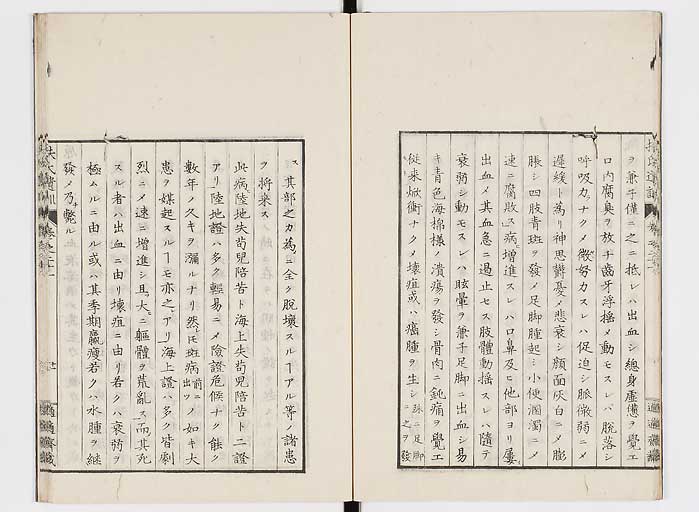 ヲ兼子僅ニ之ニ抵レハ出血シ總身虚憊ヲ覺エ
口内腐臭ヲ放チ齒牙浮搖メ動モスレハ脱落シ
呼吸力ナクメ微努力スレハ促迫シ脈微弱ニメ
遲緩ト爲リ神思欝憂メ悲哀シ顔面灰白ニメ膨
脹シ四肢青斑ヲ發メ足脚腫起シ小便溷濁ニメ
速ニ腐敗ス病増進スレハ口鼻及ヒ他部ヨリ屢
出血メ其血急ニ遏止セス肢體動搖スレハ隨テ
衰弱シ動モスレハ眩暈ヲ兼子足脚ニ出血シ易
キ青色海棉樣ノ潰瘍ヲ發シ骨肉ニ鈍痛ヲ覺エ
從来焮衝ナクメ壊疽或ハ癌腫ヲ生シ跡ニ足脚ニ之ヲ發
ス其部之カ為ニ全ク脱壊スルーアル等ノ諸患
ヲ将來ス
此病陸地失苟兒陪苦ト海上失苟兒陪苦ト二證
アリ陸地證ハ多ク輕易ニメ險證危候ナク能ク
數年ノ久キヲ瀰ルナリ然𪜈斑病前ニ出ツノ如キ大
患ヲ媒起スルーモ亦之アリ海上證ハ多ク皆劇
烈ニメ速ニ増進シ且大ニ軀體ヲ荒亂ス而其死
スル者ハ出血ニ由リ壊疽ニ由リ若クハ衰弱ヲ
極ムルニ由ル或ハ其季期羸瘦若クハ水腫ヲ継
發メ乃斃ル